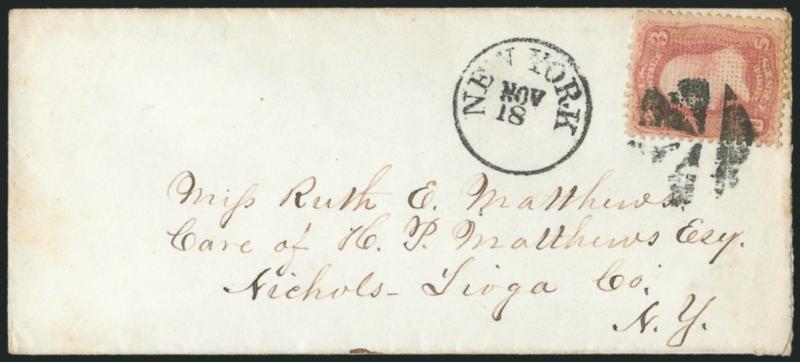 NEW YORK
NOV
18
3
Miss Ruth E. Matthews
Care of H. P. Matthews Esq.
Nichols- Tioga Co.
N. Y.